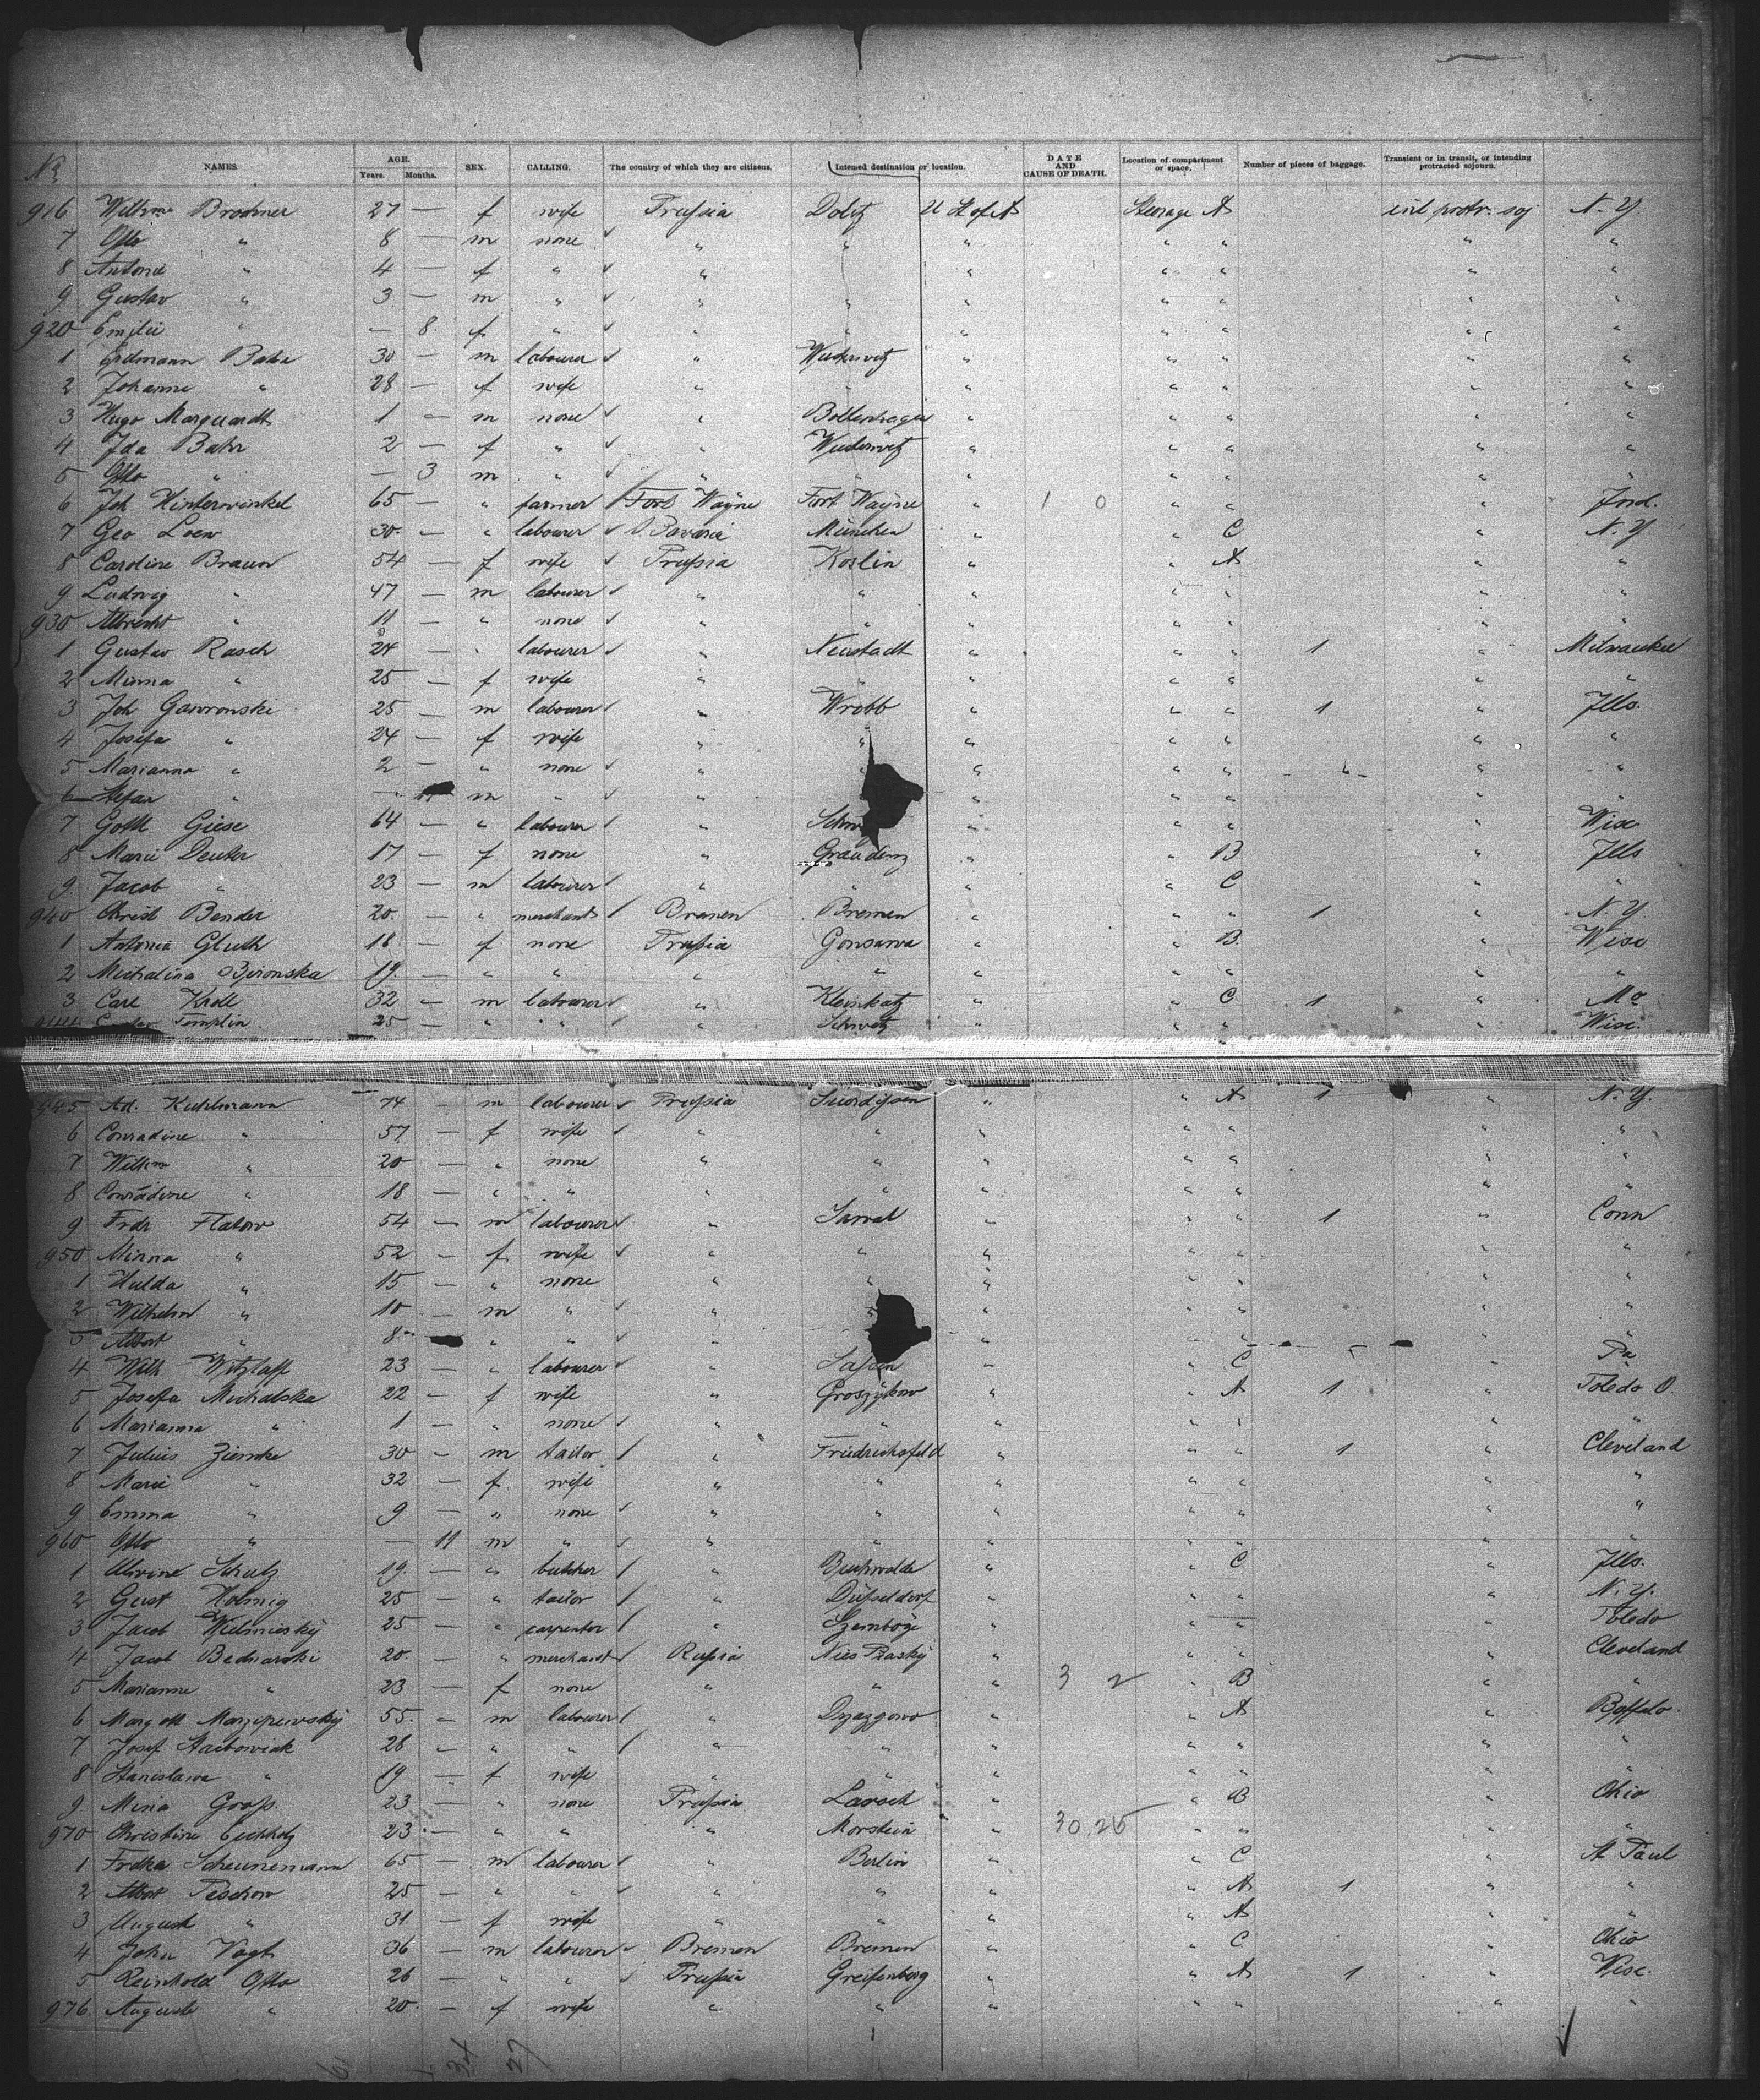 No NAMES AGE. Years. Months. SEX. CALLING. The country of which they are citizens. Intened destination or location. DATE AND CAUSE OF DEATH. Location of compartment or space. Number of pieces of baggage. Transient or in transit, or intending protracted sojourn.
916 Wilhme Brodmer 27 — f wife Prussia Dolitz U St of A Steerage A int protr. soj N. Y.
7 Otto " 8 — m none " " " " " " "
8 Antonie " 4 — f " " " " " " "
9 Gustav " 3 — m " " " " " " " "
920 Emilie " — 8. f " " " " " " " "
1 Erdmann Bahr 30 — m labourer " " " " " "
2 Johanne " 28 — f wife " " " " " " "
3 Hugo Marquardt 1 — m none " Bollenhagen " " " " "
4 Ida Bahr 2 — f " " " " " " "
5 Otto " — 3 m " " " " " " " "
6 Joh Hinterwinkel 65 — " farmer Fort Wayne Fort Wayne " 1 0 " " " Ind.
7 Geo Loew 30. — " labourer Bavaria München " " C " N. Y.
8 Caroline Braun 54 — f wife Prussia Koslin " " A " "
9 Ludwig " 47 — m labourer " " " " " " "
930 Albrecht " 11 — " none " " " "
1 Gustav Rasch 24 — " labourer " Neustadt " " " 1 " Milwaukee
2 Minna " 25 — f wife " " " " " " "
3 Joh Gawronski 25 — m labourer " Wrobb " " " 1 " Ills.
4 Josefa " 24 — f wife " " " " " " "
5 Marianna " 2 — " none " " " " " " "
6 Stefan " — m " " " " " " "
7 Gottl Giese 64 — " labourer " Schw " " " " Wisc
8 Marie Deuter 17 — f none " Graudenz " " B " Ills
9 Jacob " 23 — m labourer " " " " C " "
940 Christ Bender 20. — " merchant Bremen Bremen " " " 1 " N. Y.
1 Antonia Gluth 18 — f none Prussia Gonsawa " " B " Wisc
2 Michalina 19. — " " " " " " " " "
3 Carl Kroll 32 — m labourer " Kleinkatz " " C 1 " Mo
944 Gustav Templin 25 — " " " Schwetz " " " " Wisc.
945 Ad. Kuhlmann 74 — m labourer Prussia " " A 1 " N. Y.
6 Conradine " 57 — f wife " " " " " " "
7 Wilhme " 20 — " none " " " " " " "
8 Conradine " 18 — " " " " " " " " "
9 Frdr Flatow 54 — m labourer " " " " 1 " Conn
950 Minna " 52 — f wife " " " " " " "
1 Hulda " 15 — " none " " " " " " "
2 Wilhelm " 10 — m " " " " " " " "
3 Albert " 8 " " " " " " "
4 Wilh Witzlaff 23 — " labourer " " " C " Pa
5 Josefa Michalska 22 — f wife " " " A 1 " Toledo O.
6 Marianna " 1 — " none " " " " " " "
7 Julius Ziemke 30 — m tailor " Friedrichsfeld " " " 1 " Cleveland
8 Marie " 32 — f wife " " " " " " "
9 Emma " 9 — " none " " " " " " "
960 Otto " — 11 m " " " " " " " "
1 Schulz 19. — " butcher " Buchwalde " " C " Ills.
2 Gust Holmig 25 — " tailor " Düsseldorf " " " " N. Y.
3 Jacob 25 — " carpenter " " " " " Toledo
4 Jacob Bednarski 20 — " merchant Russia " " " " Cleveland
5 Marianne " 23 — f none " " " 3 2 " B " "
6 55. — m labourer " " " A " Buffalo.
7 Josef 28 — " " " " " " " " "
8 Stanislawa " 19 — f wife " " " " " " "
9. Mina Gross. 23 — " none Prussia " " B " Ohio
970 Christine Eichholz 23. — " " " Morstein " 30,25 " " " "
1 Frdka Scheunemann 65 — m labourer " Berlin " " C " St Paul
2 Albert Peschow 25 — " " " " " " A 1 " "
3 August " 31 — f wife " " " " A " "
4 John Vogt 36 — m labourer Bremen Bremen " " C " Ohio
5 Reinhold Otto 26 — " " Prussia Greifenberg " " A 1 " Wisc.
976 Auguste " 20. — f wife " " " " " " "
34 27